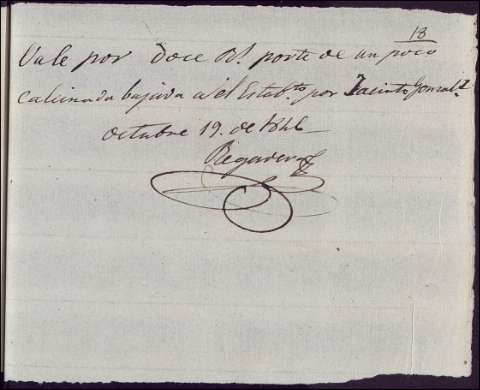 18
Vale por doce Rs. porte de un poco
calcinada bajada a el Estab.to por Jacinto Gonzal.z
octubre 19. de 1846